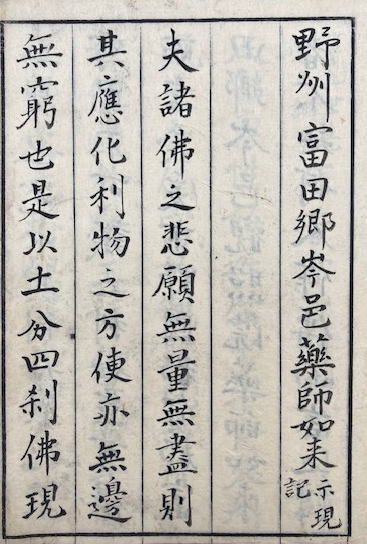 野州富田郷岑邑藥師如来示現記
夫諸佛之悲願無量無盡則
其應化利物之方便亦無邊
無窮也是以土分四刹佛現